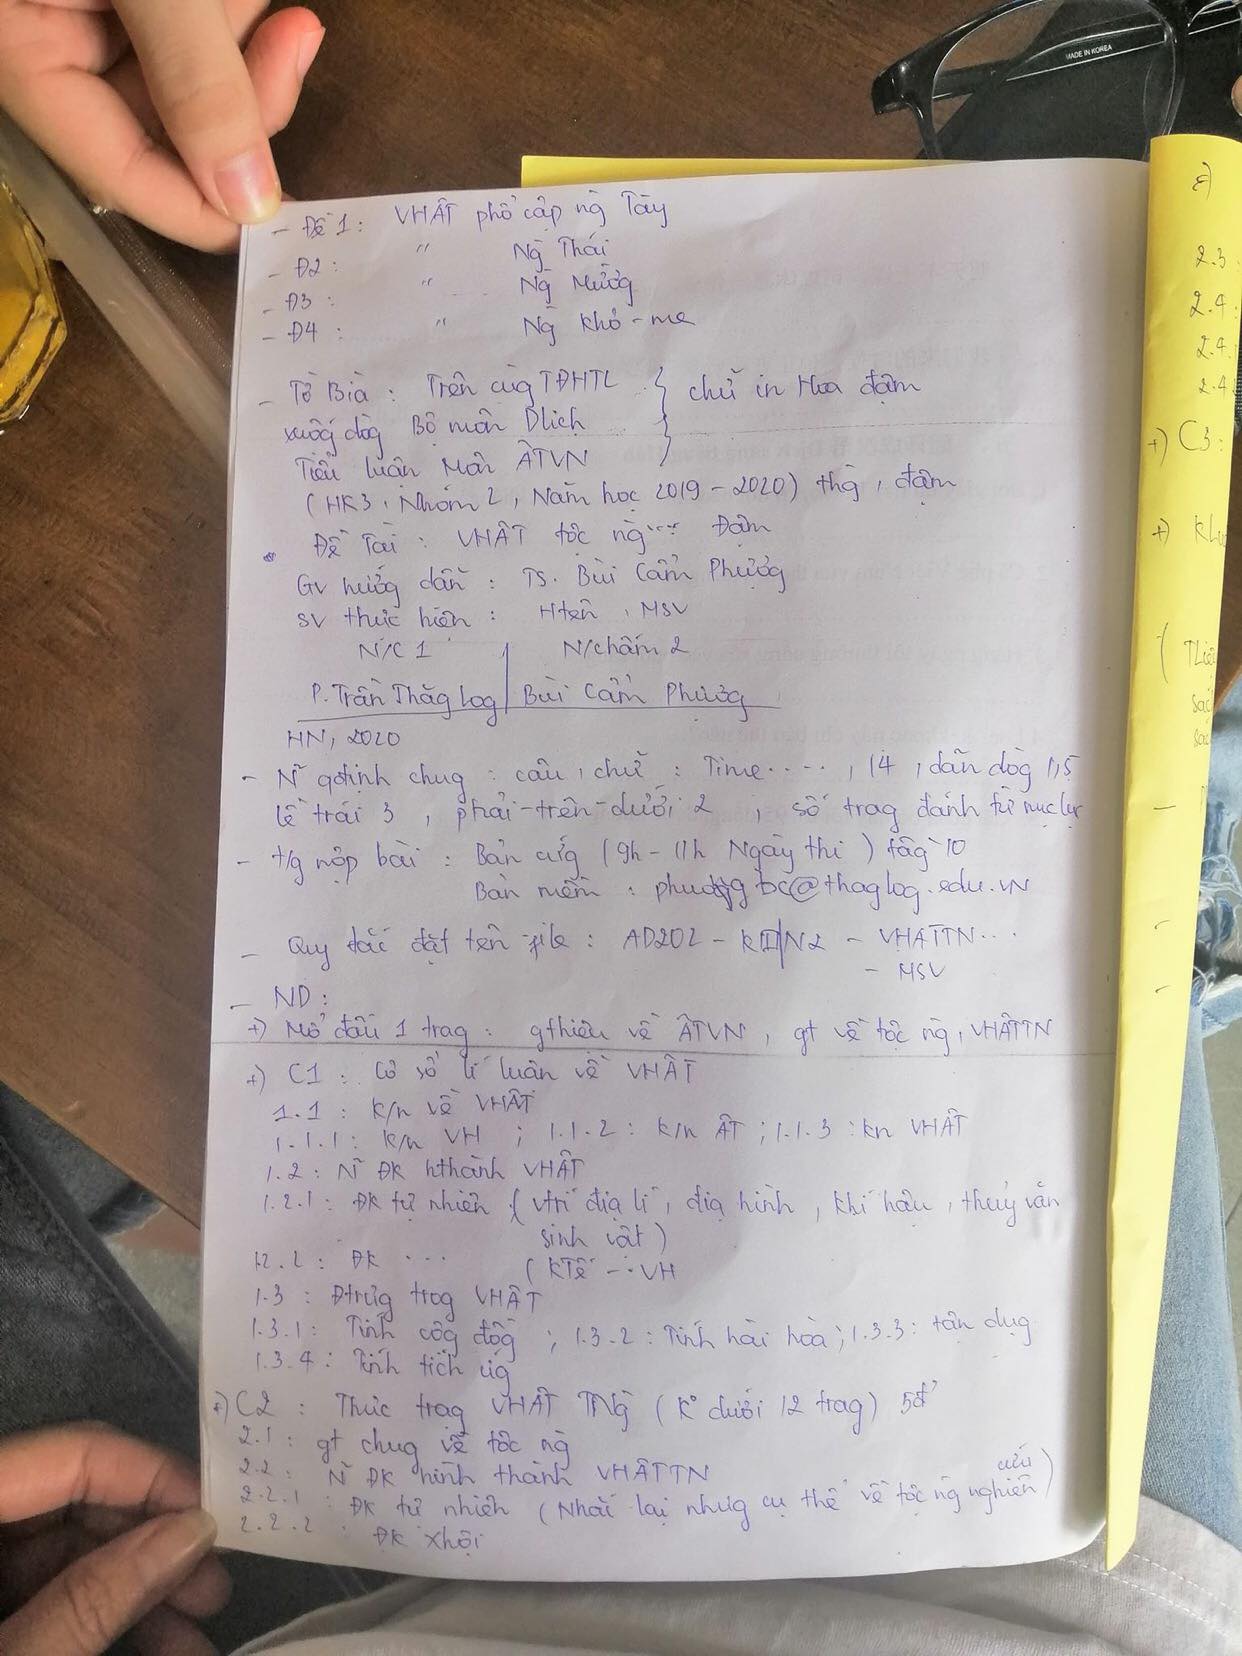 MADE IN KOREA
- Đề 1: VHÂT phổ cập ng Tày
- Đ2: " Ng Thái
- Đ3: " Ng Mường
- Đ4: " Ng Khơ-me
- Tờ Bìa: Trên cùg TĐHTL } chữ in Hoa đậm
xuốg dòg Bộ môn Dlịch
Tiểu luận Môn ÂTVN
(HK3, Nhóm 2, Năm học 2019-2020) thg, đậm
Đề Tài: VHÂT tộc ng... Đậm
GV hướg dẫn: TS. Bùi Cẩm Phượg
SV thực hiện: Htên, MSV
N/C 1 N/chấm 2
P. Trần Thăg Log Bùi Cẩm Phượg
HN, 2020
- N~ qđịnh chug: câu, chữ: Time...., 14, dãn dòg 1,5
lề trái 3, phải-trên-dưới 2, số trag đánh từ mục lục
- t/g nộp bài: Bản cứg (9h-11h Ngày thi) tầg 10
Bản mềm: phuog bc@thaglog.edu.vn
- Quy tắc đặt tên file: AD202 - KIIIN2 - VHATTN...
- MSV
- ND:
+) Mở đầu 1 trag: gthiệu về ÂTVN, gt về tộc ng, VHÂTTN
+) C1: Cơ sở lí luận về VHÂT
1.1: K/n về VHÂT
1.1.1: K/n VH; 1.1.2: K/n ÂT; 1.1.3: kn VHÂT
1.2: N~ ĐK hthành VHÂT
1.2.1: ĐK tự nhiên (vtrí địa lí, địa hình, khí hậu, thuỷ văn
sinh vật)
1.2.2: ĐK ... (KTế...VH
1.3: Đtrưg trog VHÂT
1.3.1: Tính cộg đồg; 1.3.2: Tính hài hòa; 1.3.3: tận dụg
1.3.4: Tính tích
+) C2: Thực trạg VHÂT TNg (K° dưới 12 trag) 5đ
2.1: gt chug về tộc ng
2.2: N~ ĐK hình thành VHÂTTN
2.2.1: ĐK tự nhiên (Nhắc lại nhưg cụ thể về tộc ng nghiên cứu)
2.2.2: ĐK xhội
2.3
2.4
2.4.
2.4
+) C3:
+)
(